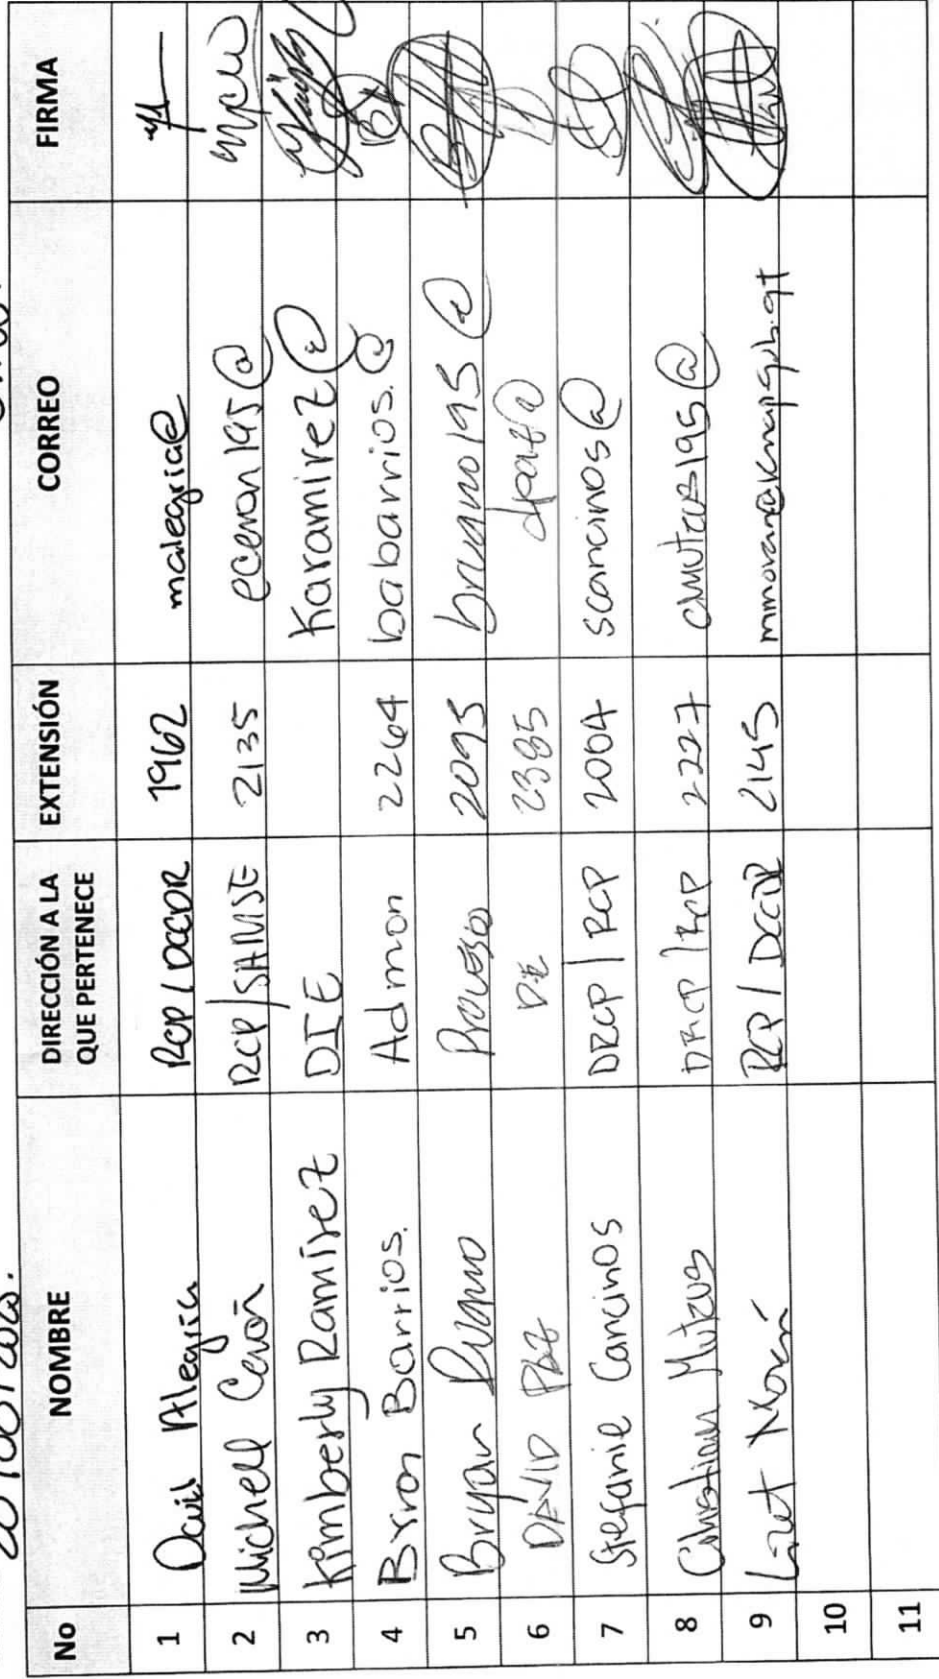 No NOMBRE DIRECCIÓN A LA QUE PERTENECE EXTENSIÓN CORREO FIRMA
1 David Alegría RCP / DCCDR 1962 malegria@
2 Michell Cerón RCP/SAMSE 2135 eceron195@
3 Kimberly Ramírez DIE Karamirez@
4 Byron Barrios. Admon 2264 babarrios.@
5 Bryan 2093 @
6 DAVID Paz DE 2385 dpaz@
7 Stefanie Cancinos DRCP / RCP 2004 scancinos@
8 Christian Mutzus DRCP / RCP 2227 cmutzus195@
9 Lizet Morán RCP / 2145
10
11